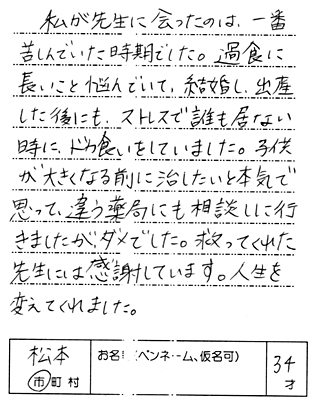 私が先生に会ったのは、一番
苦しんでいた時期でした。過食に
長いこと悩んでいて、結婚し、出産
した後にも、ストレスで誰も居ない
時に、ドカ食いをしていました。子供
が大きくなる前に治したいと本気で
思って、違う薬局にも相談しに行
きましたが、ダメでした。救ってくれた
先生には感謝しています。人生を
変えてくれました。
松本
市町村
お名 (ペンネーム、仮名可)
34
才